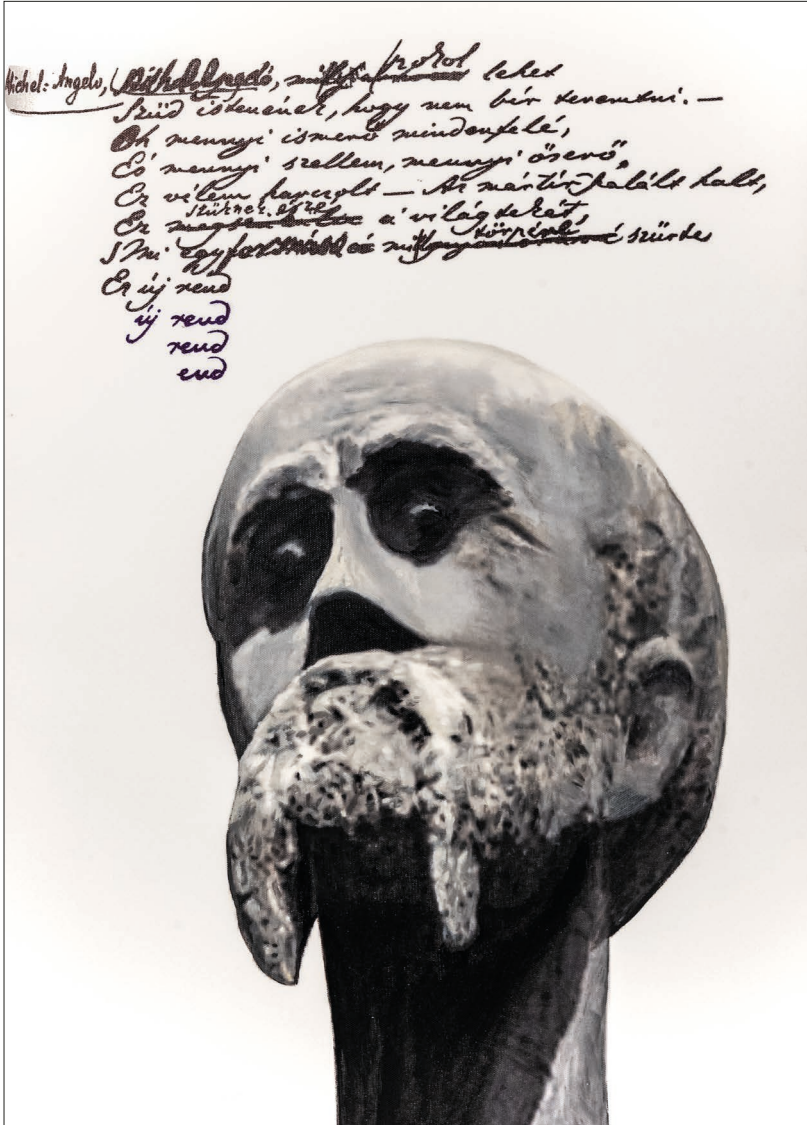 Michel-Angelo, pokol lehet
Szűd istenének, hogy nem bír teremtni. —
Oh mennyi ismerő mindenfelé,
És mennyi szellem, mennyi őserő,
Ez vélem harczolt — Az mártír-halált halt,
Ez szűknek érzé a' világtekét,
S Mi törpévé szűrte
Ez új rend
új rend
rend
end